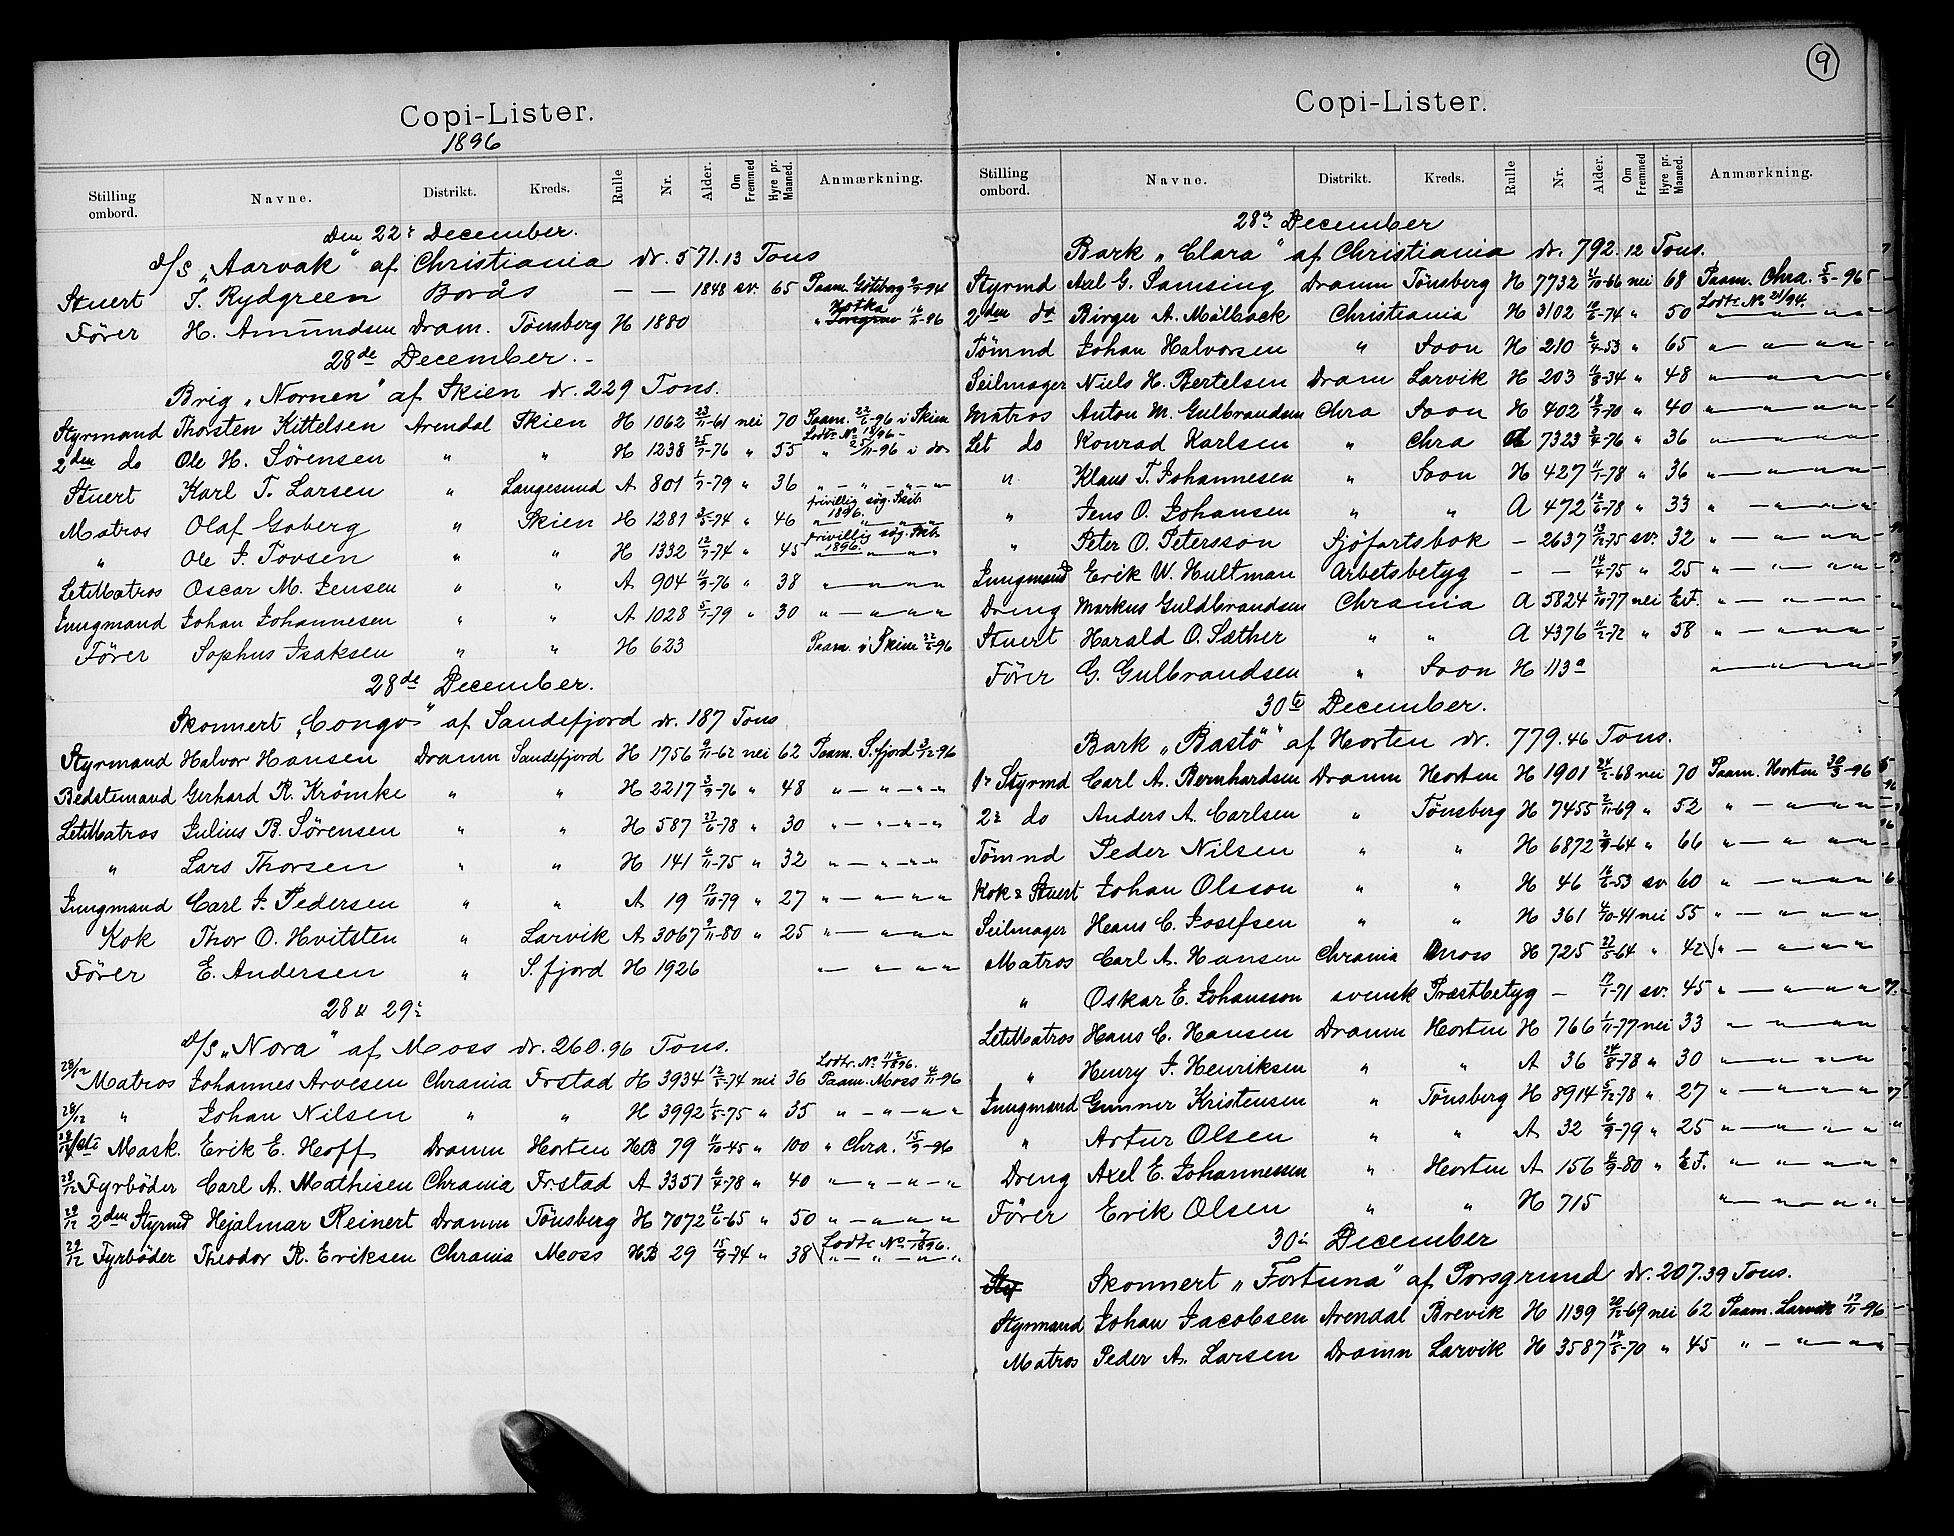 9
Copi-Lister.
1896
Stilling ombord. Navne. Distrikt. Kreds. Rulle Nr. Alder. Om Fremmed Hyre pr. Maaned. Anmærkning.
Den 22 December.
D/S „Aarvak“ af Christiania dr. 571.13 Tons
Stuert T. Rydgreen Borås — — 1848 sv. 65 Paam. Göteborg
Kotka
Fører H. Amundsen Dram. Tønsberg H 1880
28de December. -
Brig „Nornen“ af Skien dr. 229 Tons.
Styrmand Thorsten Kittelsen Arendal Skien H 1062 23/11-61 nei 70 Paam. 22/2-96 i Skien
2den do Ole H. Sørensen " " H 1238 25/7-76 " 55
Stuert Karl T. Larsen " Langesund A 801 1/7-79 " 36 " — " — " — "
frivillig søg. Skib 1896.
Matros Olaf Goberg " Skien H 1281 3/5-74 " 46
frivillig søg. Skib 1896.
" Ole J. Tovsen " " H 1332 12/7-74 " 45
LetMatros Oscar M. Jensen " " A 904 11/9-76 " 38 " — " — " — "
Jungmand Johan Johannesen " " A 1028 5/1-79 " 30 " — " — " — "
Fører Sophus Isaksen " " H 623 Paam. i Skien 22/2-96
28de December.
Skonnert „Congo“ af Sandefjord dr. 187 Tons
Styrmand Halvor Hansen Dramn Sandefjord H 1756 9/11-62 nei 62 Paam. S.fjord 3/12-96
Bedstemand Gerhard R. Krömke " " H 2217 3/9-76 " 48 " — " — " — "
LetMatros Julius B. Sørensen " " H 587 27/6-78 " 30 " — " — " — "
" Lars Thorsen " " H 141 6/11-75 " 32 " — " — " — "
Jungmand Carl J. Pedersen " " A 19 12/10-79 " 27 " — " — " — "
Kok Thor O. Hvitsten " Larvik A 3067 9/11-80 " 25 " — " — " — "
Fører E. Andersen " S.fjord H 1926 " — " — " — "
28 & 29
D/S „Nora“ af Moss dr. 260.96 Tons.
28/12 Matros Johannes Arvesen Chrania Frstad H 3934 12/8-74 nei 36 Paam. Moss 4/11-96
28/12 " Johan Nilsen " " H 3992 1/8-75 " 35 " — " — " — "
28/12 Mask. Erik E. Hoff Dramn Horten HB 79 11/10-45 " 100 " Chra. 15/9-96
28/12 Fyrbøder Carl A. Mathisen Chrania Frstad A 3351 6/4-78 " 40 " — " — " — "
29/12 2den Styrmd Hejalmar Reinert Dramn Tønsberg H 7072 12/6-65 " 50 " — " — " — "
29/12 Fyrbøder Theodor R. Eriksen Chrania Moss HB 29 15/9-74 " 38
Copi-Lister.
Stilling ombord. Navne. Distrikt. Kreds. Rulle Nr. Alder. Om Fremmed Hyre pr. Maaned. Anmærkning.
28 December
Bark „Clara“ af Christiania dr. 792.12 Tons.
Styrmd Axl G. Samsing Dramn Tønsberg H 7732 nei 68 Paam. Chra. 5/5-96
2den do Birger A. Mölback Christiania H 3102 " 50
Tömnd Johan Halvorsen " Soon H 210 6/4-53 " 65 " — " — " — "
Seilmager Niels H. Bertelsen Dramn Larvik H 203 11/8-34 " 48 " — " — " — "
Matros Anton M. Gulbrandsen Chra Soon H 402 " 40 " — " — " — "
Let do Konrad Karlsen " Chra 7323 3/4-76 " 36 " — " — " — "
" Klaus T. Johannesen " Soon H 427 11/1-78 " 36 " — " — " — "
" Jens O. Johansen " " A 472 12/6-78 " 33 " — " — " — "
" Peter O. Petersson Sjöfartsbok - 2637 13/12-75 sv. 32 " — " — " — "
Jungmand Erik W. Hultman Arbetsbetyg - - 14/4-75 " 25 " — " — " — "
Dreng Markus Guldbrandsen Chrania A 5824 3/10-77 nei E.F. " — " — " — "
Stuert Harald O. Sæther " " A 4376 11/2-72 " 58 " — " — " — "
Fører G. Gulbrandsen " Soon H 113a " — " — " — "
30te December.
Bark „Bastö“ af Horten dr. 779.46 Tons.
1 Styrmd Carl A. Bernhardsen Dramn Horten H 1901 24/2-68 nei 70 Paam. Horten 30/3-96
2 do Anders A. Carlsen " Tønsberg H 7455 2/11-69 " 52 " — " — " — "
Tömnd Peder Nilsen " " H 6872 2/9-64 " 66 " — " — " — "
Kok & Stuert Johan Olsson " " H 46 16/6-53 sv 60 " — " — " — "
Seilmager Hans C. Josefsen " " H 361 4/10-41 nei 55 " — " — " — "
Matros Carl A. Hansen Chrania Moss H 725 27/5-64 " 42 " — " — " — "
" Oskar E. Johansson svensk Præstbetyg - 17/1-71 sv. 45 " — " — " — "
LetMatros Hans C. Hansen Dramn Horten H 766 1/11-77 nei 33 " — " — " — "
" Henry J. Henriksen " " A 36 24/8-78 " 30 " — " — " — "
Jungmand Gunner Kristensen " Tønsberg H 8914 5/12-78 " 27 " — " — " — "
" Artur Olsen " " A 32 6/9-79 " 25 " — " — " — "
Dreng Axel E. Johannessen " Horten A 156 4/9-80 " E.F. " — " — " — "
Fører Erik Olsen " " H 715 " — " — " — "
30 December
Skonnert „Fortuna“ af Porsgrund dr. 207.39 Tons.
Styrmand Johan Jacobsen Arendal Brevik H 1139 20/12-69 nei 62 Paam. Larvik 17/11-96
Matros Peder A. Larsen Dramn Larvik H 3587 14/5-70 " 45 " — " — " — "